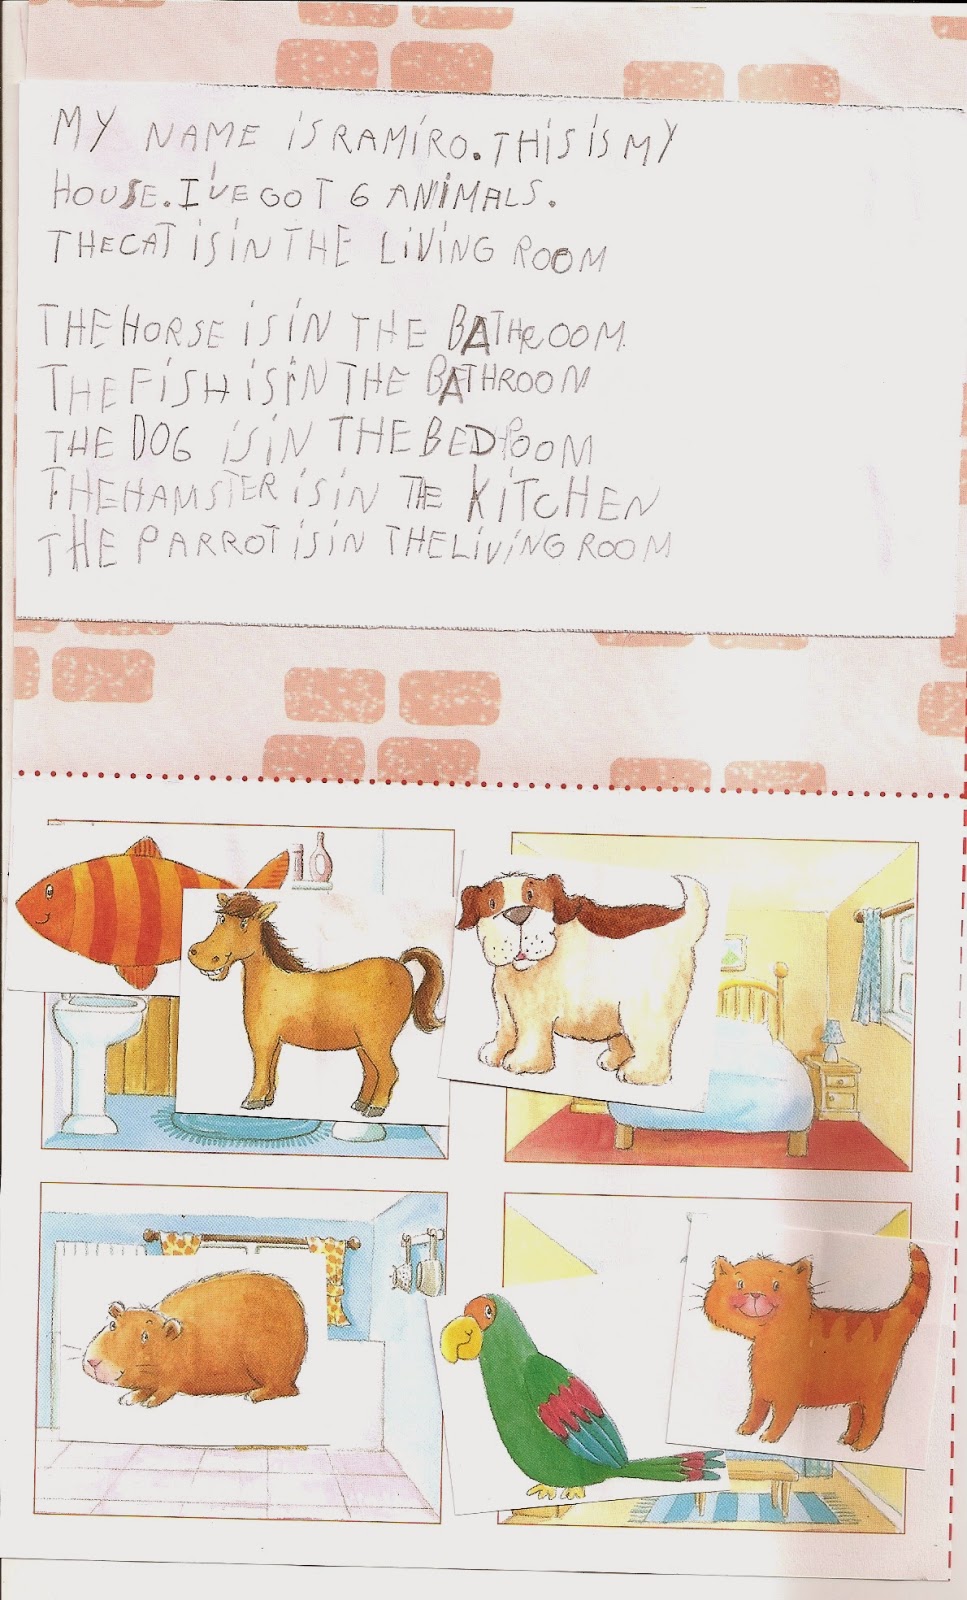 MY NAME iS RAMiRO. THiS iS MY
HOUSE. I'VE GOT 6 ANIMALS.
THE CAT iS iN THE LiViNG ROOM
THE HORSE iS iN THE BATHROOM.
THE FiSH iS iN THE BATHROOM
THE DOG iS iN THE BEDROOM
THE HAMSTER iS iN THE KiTCHEN
THE PARROT iS iN THE LiViNG ROOM